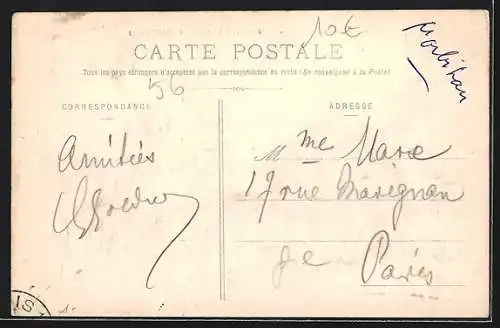 10€
Morbihan
CARTE POSTALE
Tous les pays étrangers n'acceptent pas la correspondance au recto (Se renseigner à la Poste)
56
CORRESPONDANCE
ADRESSE
Amitiés
Mme Marx
17 rue Marignan
8e Paris
SI